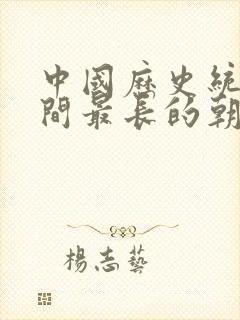 中國歷史統
間最長的朝
楊志藝